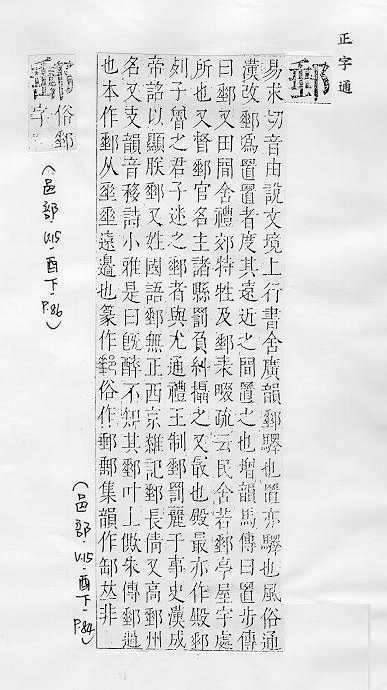 正字通
郵
易求切音由說文境上行書舍廣韻郵驛也置亦驛也風俗通
漢改郵為置置者度其遠近之間置之也增韻馬傳曰置步傳
曰郵又田間舍禮郊特牲及郵表畷疏云民舍若郵亭屋宇處
所也又督郵官名主諸縣罰負糾攝之又最也殿最亦作殿郵
列子魯之君子迷之郵者與尤通禮王制郵罰麗于事史漢成
帝詔以顯朕郵又姓國語郵無正西京雜記郵長倩又高郵州
名又支韻音移詩小雅是曰旣醉不知其郵叶上僛朱傳郵過
也本作郵从垂垂遠邊也篆作俗作郵集韻作非
(邑部 U.15.酉下.P.84)
俗郵字
(邑部 U.15.酉下.P.86)